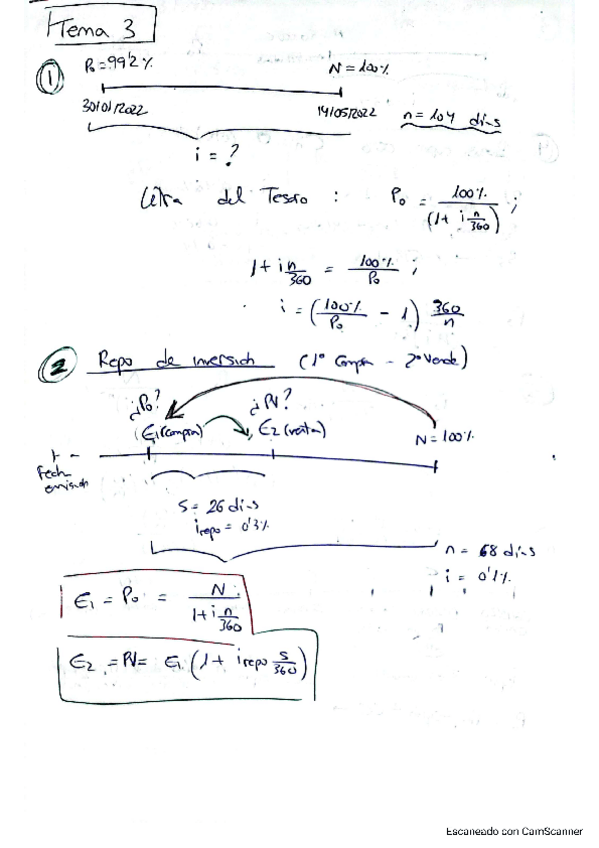 Tema 3
① P₀ = 99'2% N = 100%
30/01/2022 14/05/2022 n = 104 días
i = ?
Letra del Tesoro : P₀ = 100% / (1 + i n/360) ;
1 + i n/360 = 100% / P₀ ;
i = (100% / P₀ - 1) 360/n
② Repo de inversión (1º Compra - 2º Vende)
¿P₀? ¿PV?
E₁ (compra) E₂ (venta) N = 100%
Fecha
emisión
S = 26 días
i repo = 0'3%
n = 68 días
i = 0'1%
E₁ = P₀ = N / (1 + i n/360)
E₂ = PV = E₁ (1 + i repo S/360)
Escaneado con CamScanner